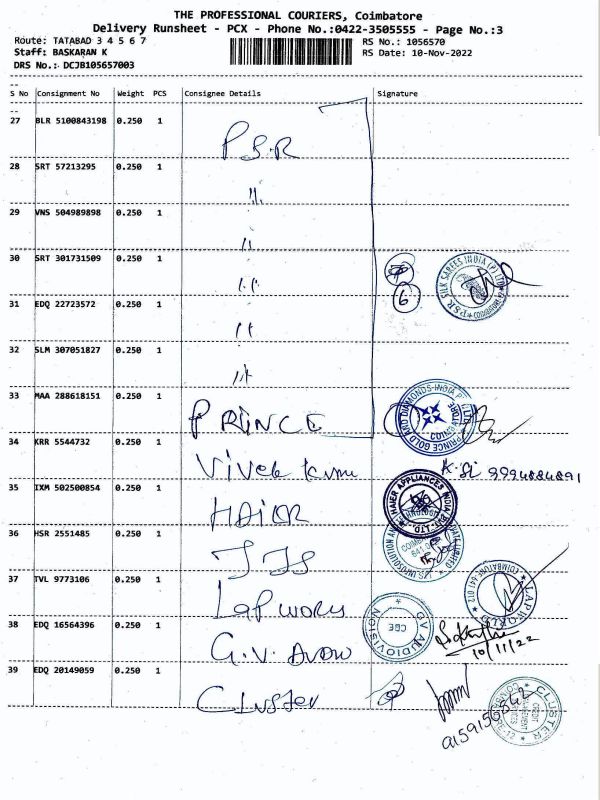 THE PROFESSIONAL COURIERS, Coimbatore
Delivery Runsheet - PCX - Phone No.:0422-3505555 - Page No.:3
Route: TATABAD 3 4 5 6 7
RS No.: 1056570
Staff: BASKARAN K
RS Date: 10-Nov-2022
DRS No.: DCJB105657003
S No Consignment No Weight PCS Consignee Details Signature
27 BLR 5100843198 0.250 1
P.S.R
28 SRT 57213295 0.250 1
29 VNS 504989898 0.250 1
30 SRT 301731509 0.250 1
P.S.R SILK SAREES INDIA (P) LTD
6
31 EDQ 22723572 0.250 1
32 SLM 307051827 0.250 1
33 MAA 288618151 0.250 1
PRINCE
PRINCE GOLD AND DIAMONDS INDIA
34 KRR 5544732 0.250 1
Vivek
9994884891
35 IXM 502500854 0.250 1
HAIER
HAIER APPLIANCES INDIA PVT. LTD
36 HSR 2551485 0.250 1
37 TVL 9773106 0.250 1
Lap works
COIMBATORE-641 012
38 EDQ 16564396 0.250 1
G.V. Audio
G.V AUDIOVISION
CBE
10/11/22
39 EDQ 20149059 0.250 1
Cluster
CLUSTER